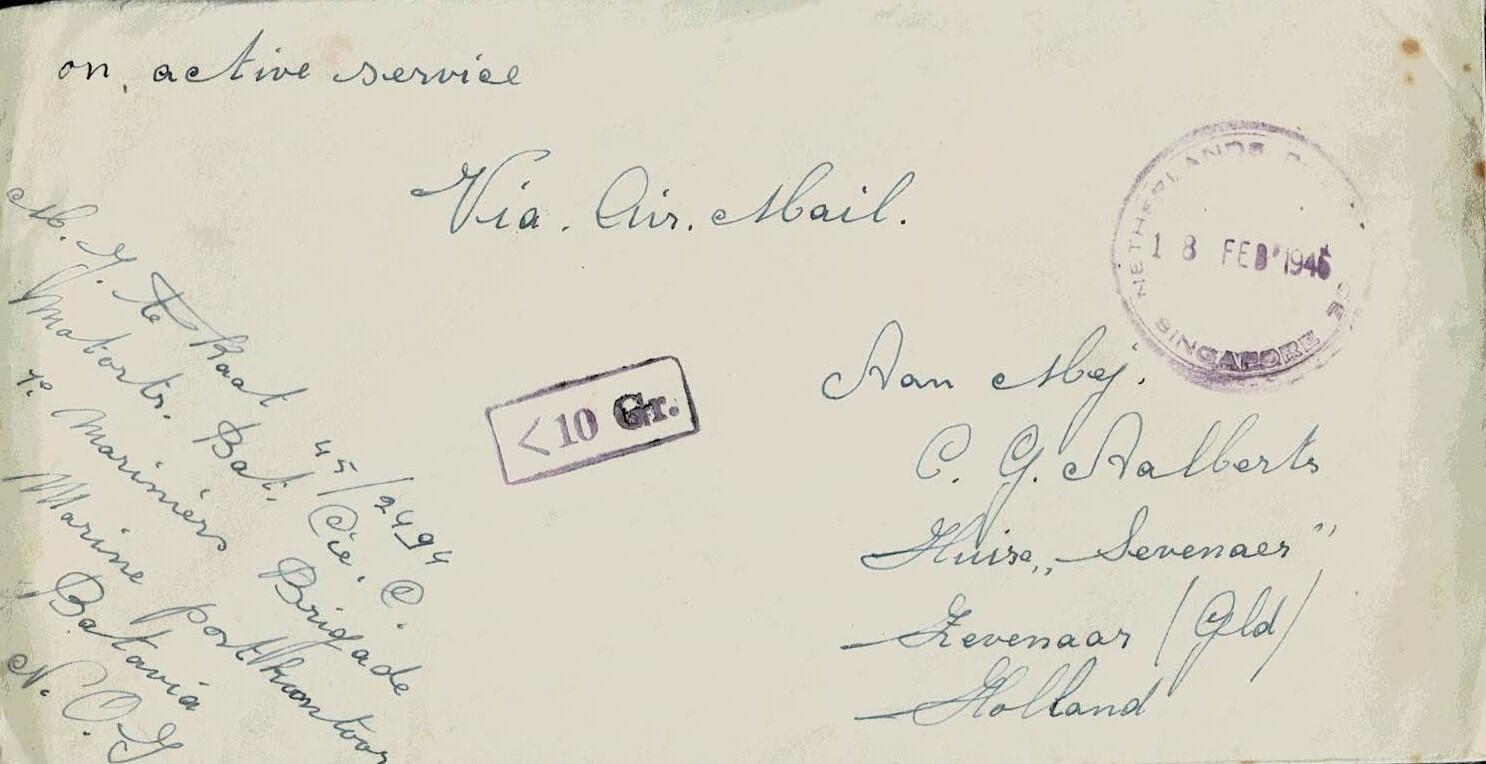 on active service
Via. Air. Mail.
NETHERLANDS
18 FEB 1946
SINGAPORE
< 10 Gr.
Aan Mej.
C. G. Aalberts
Huize „Sevenaer"
Zevenaar (Gld)
Holland
M. G. te Kaat 45/2494
Motortr. Bat. Cie. C.
1e Mariniers Brigade
Marine postkantoor
Batavia
N. O. I